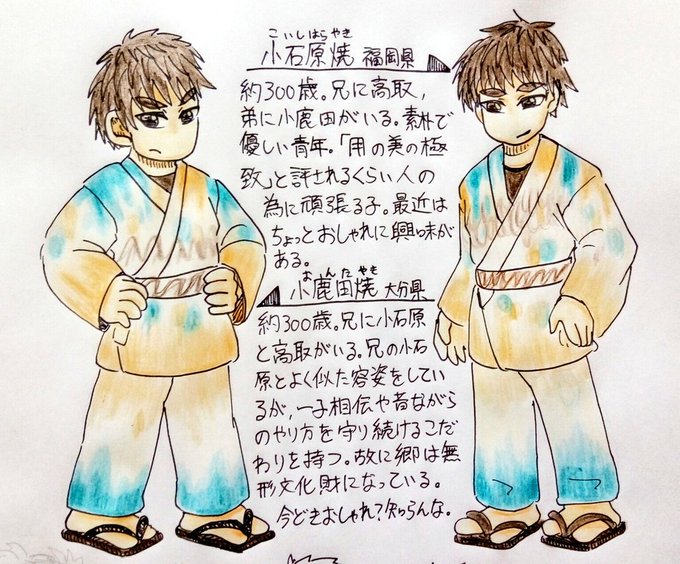 こいしはらやき
小石原焼 福岡県
約300歳。兄に高取,
弟に小鹿田がいる。素朴で
優しい青年。「用の美の極
致」と評されるくらい人の
為に頑張る子。最近は
ちょっとおしゃれに興味が
ある。
おんたやき
小鹿田焼 大分県
約300歳。兄に小石原
と高取がいる。兄の小石
原とよく似た容姿をしてい
るが,一子相伝や昔ながら
のやり方を守り続けるこだ
わりを持つ。故に郷は無
形文化財になっている。
今どきおしゃれ?知らんな。